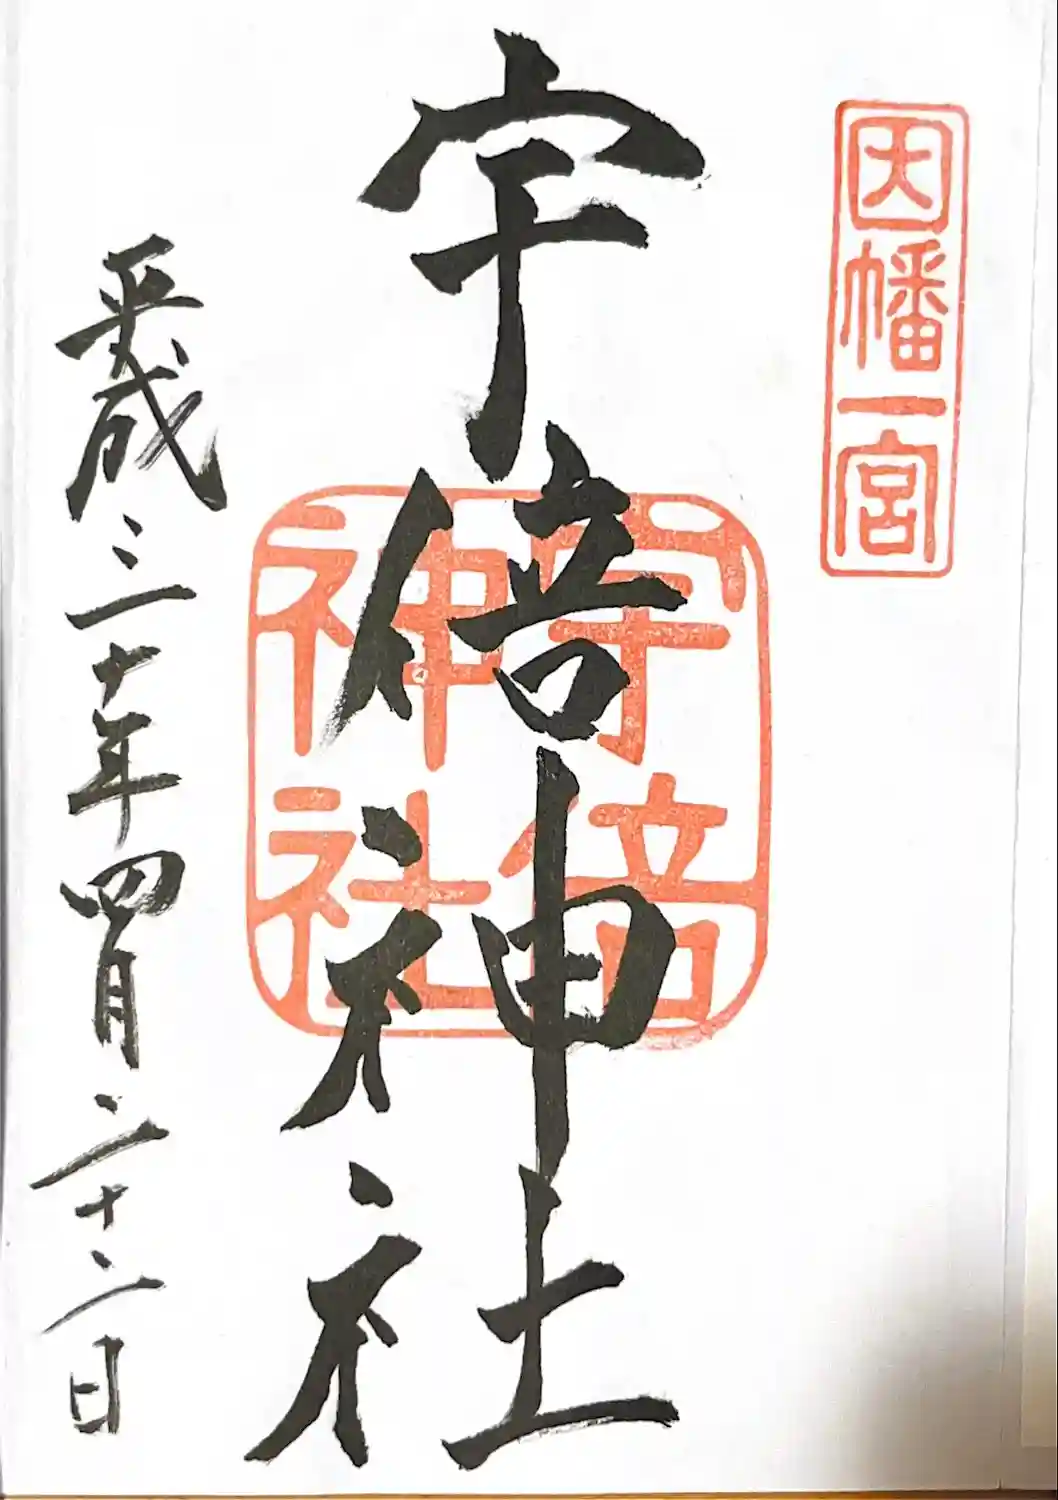 因幡一宮
宇倍神社
宇倍
神社
平成三十年四月二十二日